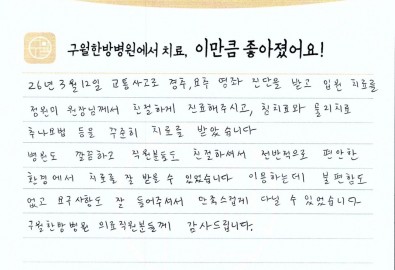 구월한방병원에서 치료, 이만큼 좋아졌어요!
26년 3월 12일 교통사고로 경추, 요추 염좌 진단을 받고 입원 치료를
정원미 원장님께서 친절하게 진료해주시고, 침치료와 물리치료
추나요법 등을 꾸준히 치료를 받았습니다
병원도 깔끔하고 직원분들도 친절하셔서 전반적으로 편안한
환경에서 치료를 잘 받을 수 있었습니다 이용하는데 불편함도
없고 요구사항도 잘 들어주셔서 만족스럽게 다닐 수 있었습니다
구월한방병원 의료직원분들께 감사드립니다.